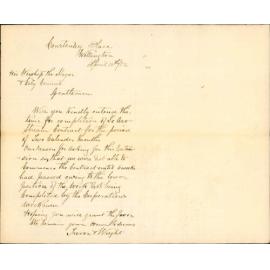 Courtenay Place
Wellington
April
His Worship the Mayor
& City Council
Gentlemen
Will you kindly extend the
time for completion of
Street Contract for the period
of Two Calendar months
Our reason for asking for this Exten-
sion is that we were not able to
Commence the Contract until weeks
had passed owing to the lower
portion of the work not being
Completed by the Corporation
workmen
Hoping you will grant the favor
We remain your
Trevor & Wright